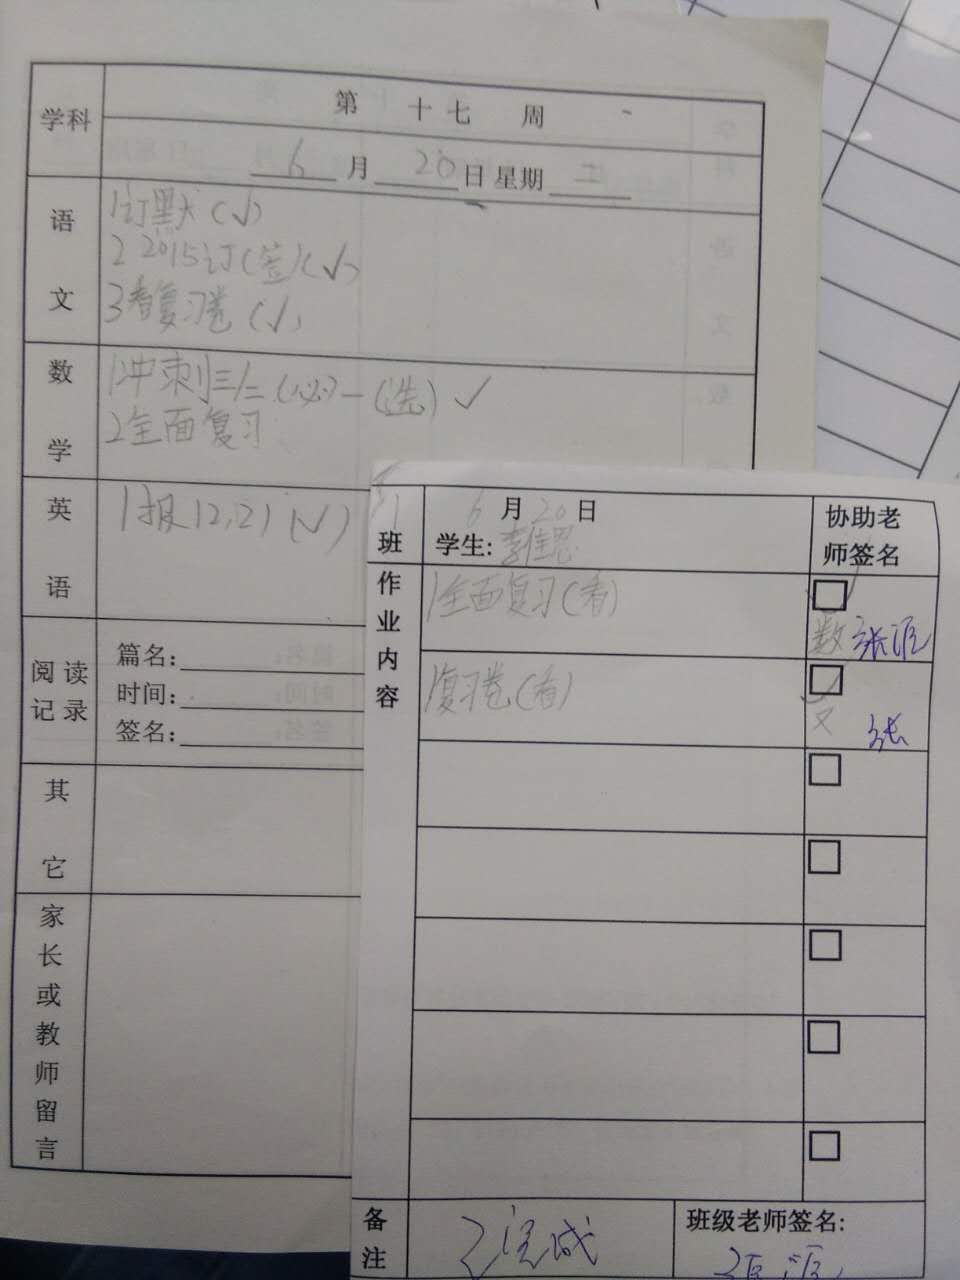 学科
第 十七 周
6月20日 星期二
语文
1订默(√)
2 2015订(签)(√)
3看复习卷(√)
数学
1冲刺三1二(必)一(选)√
2全面复习
英语
1报12,21(√)
阅读记录
篇名:
时间:
签名:
其它
家长或教师留言
班
6月20日
学生:李佳恩
协助老师签名
作业内容
1全面复习(看)
数 张
1复习卷(看)
文 张
备注
已完成
班级老师签名: